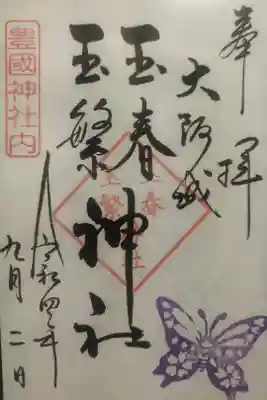 奉拝
大阪城
玉春
玉繁神社
豊國神社内
玉春
玉繁
神社
令和四年
九月二日